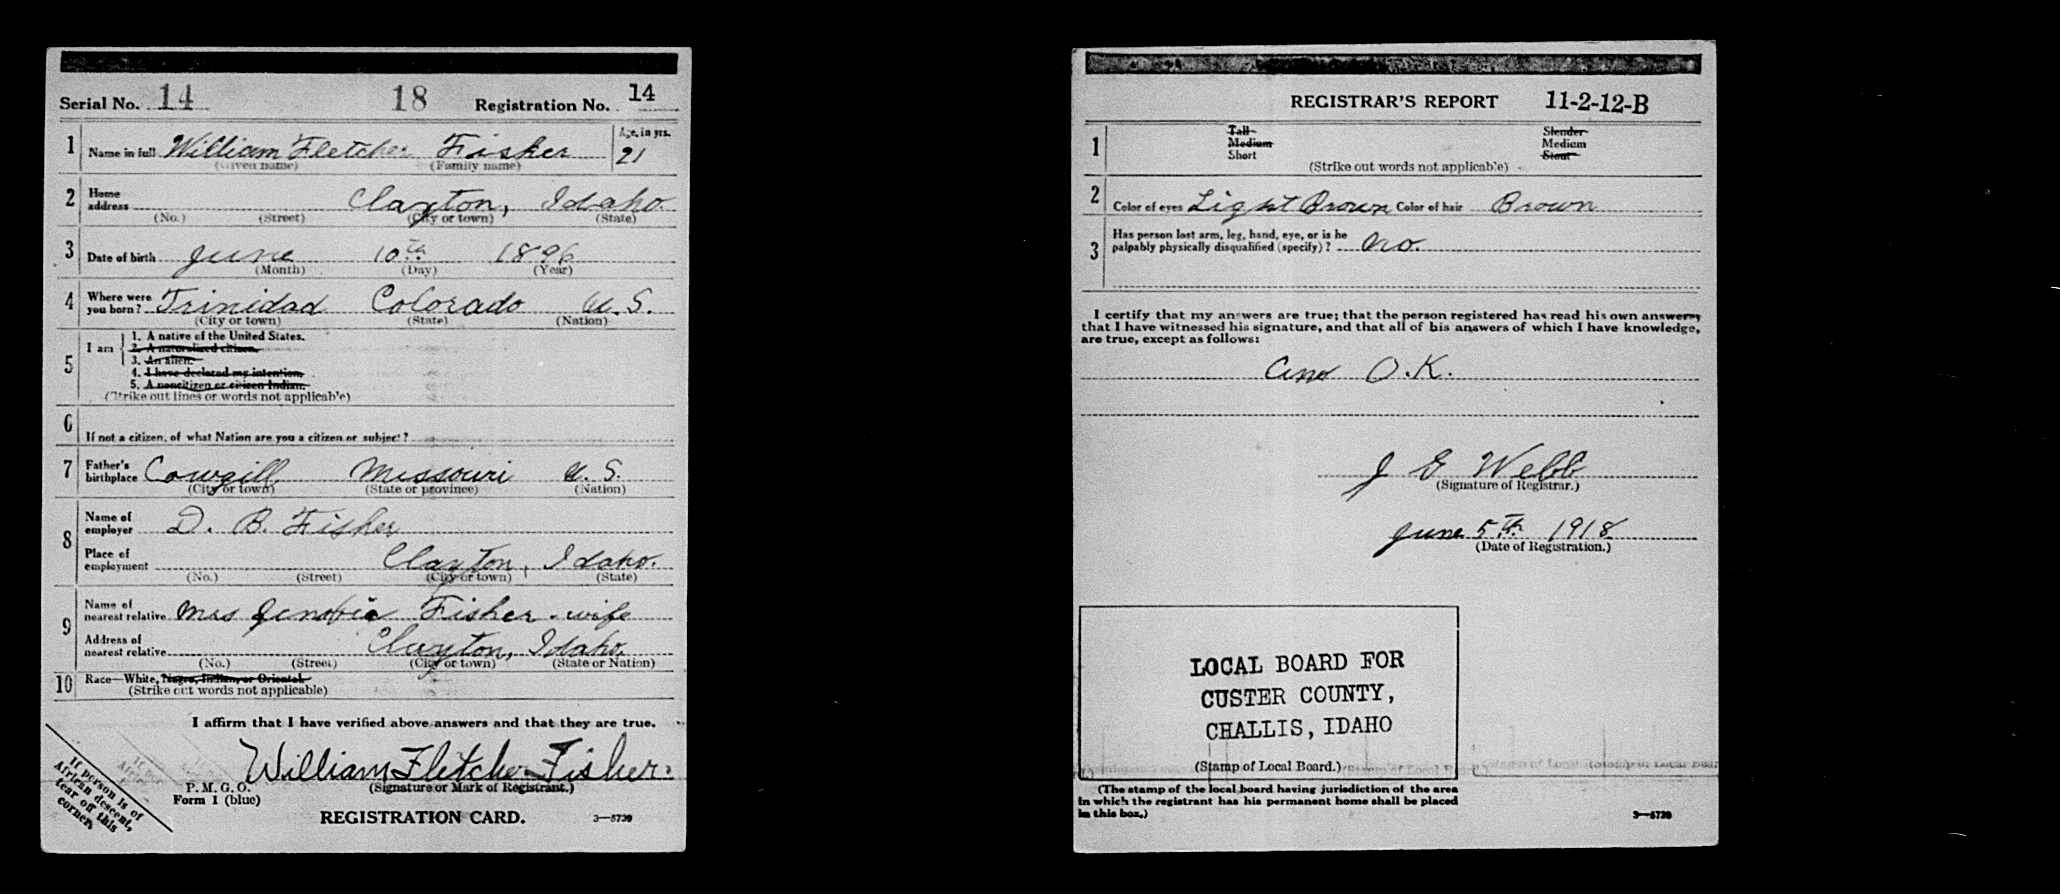 Serial No. 14 18 Registration No. 14
1 Name in full William Fletcher Fisher Age, in yrs. 21
(Given name) (Family name)
2 Home address Clayton, Idaho
(No.) (Street) (City or town) (State)
3 Date of birth June 10th 1896
(Month) (Day) (Year)
4 Where were you born? Trinidad Colorado U.S.
(City or town) (State) (Nation)
5 I am
1. A native of the United States.
2. A naturalized citizen.
3. An alien.
4. I have declared my intention.
5. A noncitizen or citizen Indian.
(Strike out lines or words not applicable)
6 If not a citizen, of what Nation are you a citizen or subject?
7 Father's birthplace Cowgill Missouri U.S.
(City or town) (State or province) (Nation)
8 Name of employer D. B. Fisher
Place of employment Clayton, Idaho.
(No.) (Street) (City or town) (State)
9 Name of nearest relative Mrs Fisher - wife
Address of nearest relative Clayton, Idaho.
(No.) (Street) (City or town) (State or Nation)
10 Race—White, Negro, Indian, or Oriental
(Strike out words not applicable)
I affirm that I have verified above answers and that they are true.
William Fletcher Fisher.
P. M. G. O.
Form 1 (blue)
(Signature or Mark of Registrant.)
REGISTRATION CARD.
3—5739
If person is of
African descent,
tear off this
corner.
REGISTRAR'S REPORT 11-2-12-B
1 Tall Slender
Medium Medium
Short Stout
(Strike out words not applicable)
2 Color of eyes Light Brown Color of hair Brown
3 Has person lost arm, leg, hand, eye, or is he
palpably physically disqualified (specify)? No.
I certify that my answers are true; that the person registered has read his own answers,
that I have witnessed his signature, and that all of his answers of which I have knowledge,
are true, except as follows:
O.K.
J E Webb
(Signature of Registrar.)
June 5th 1918
(Date of Registration.)
LOCAL BOARD FOR
CUSTER COUNTY,
CHALLIS, IDAHO
(Stamp of Local Board.)
(The stamp of the local board having jurisdiction of the area
in which the registrant has his permanent home shall be placed
in this box.)
3—5739